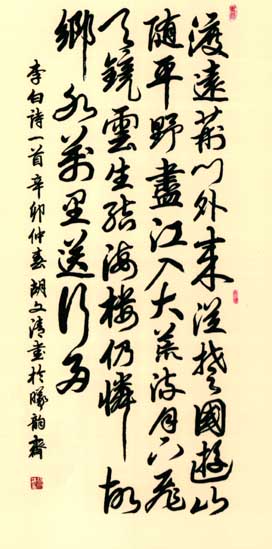 渡遠荊門外來從楚國遊山
隨平野盡江入大荒流月下飛
天鏡雲生結海樓仍憐故
鄉水萬里送行舟
李白詩一首辛卯仲春胡文清書於曦韵齋